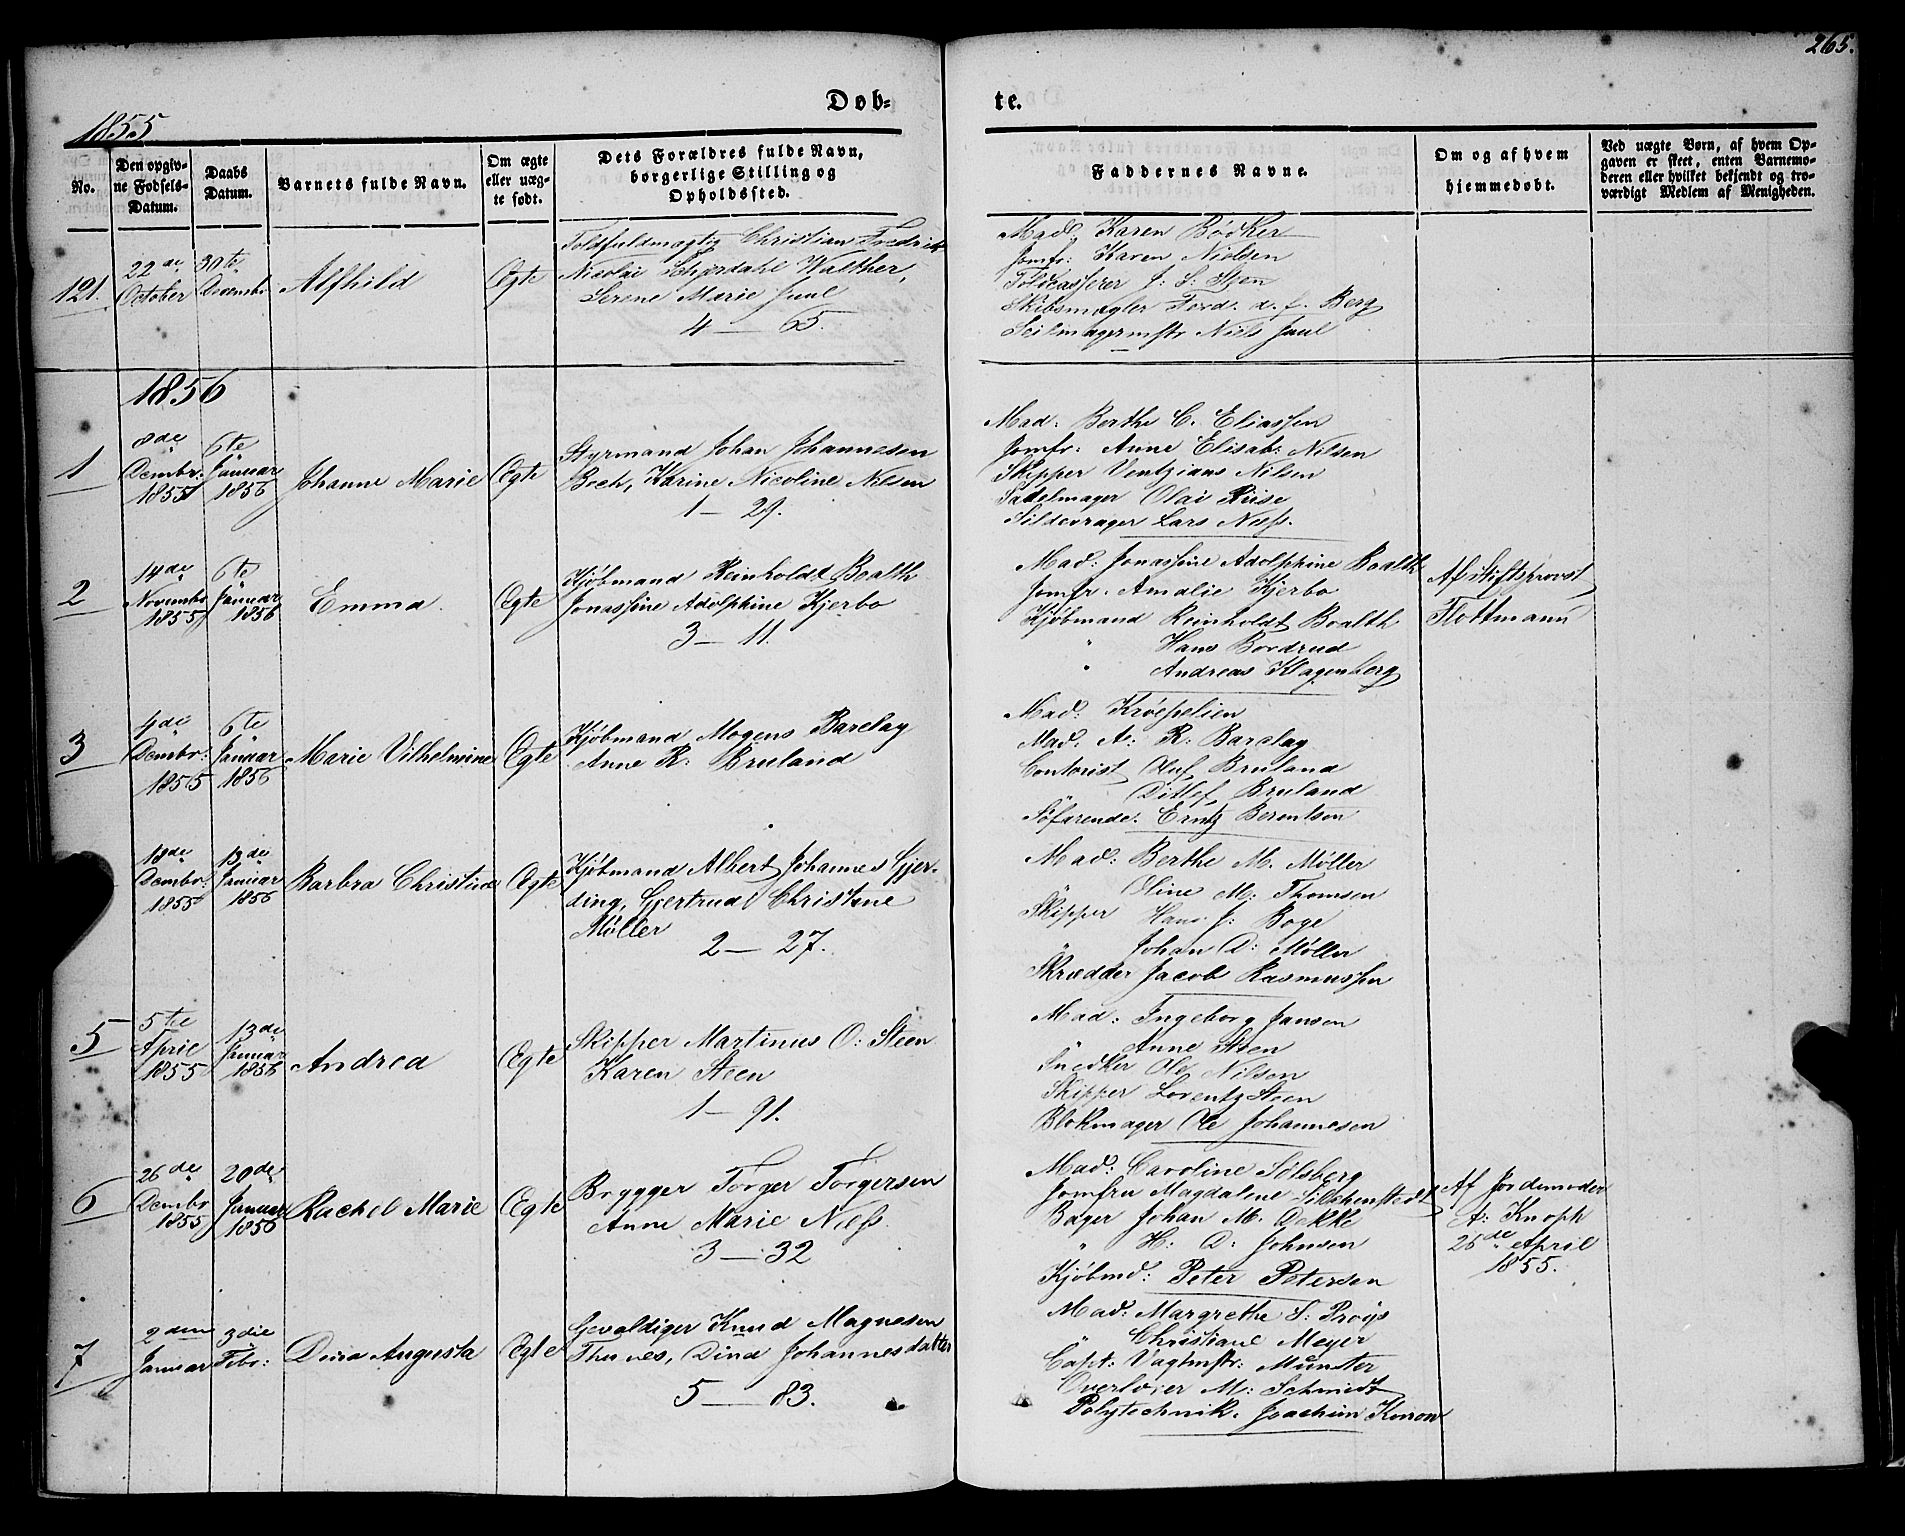 265.
1855
Døb=
te.
No.
Den opgiv-
ne Fødsels-
Datum.
Daabs
Datum.
Barnets fulde Navn.
Om ægte
eller uæg-
te født.
Dets Forældres fulde Navn,
borgerlige Stilling og
Opholdssted.
Faddernes Navne.
Om og af hvem
hjemmedøbt.
Ved uægte Børn, af hvem Op-
gaven er skeet, enten Barnemo-
deren eller hvilket bekjendt og tro-
værdigt Medlem af Menigheden.
121.
22de
October
30te
Decembr
Alfhild
Ægte
Toldfuldmægtig Christian Fredrik
Nicolai Schjerdahl Walther,
Serene Marie Juul
4 — 65.
Mad. Karen Bödker
Jomfr: Karen Nielsen
Toldcasserer J. S. Steen
Skibsmægler Ferd. d. f. Berg
Seilmagermstr Niels Juul
1856
1
8de
Decmbr:
1855
6te
Januar
1856
Johanne Marie
Ægte
Styrmand Johan Johannesen
Boch, Karine Nicoline Nilsen
1 — 29.
Mad: Berthe C. Eliassen
Jomfr: Anne Elisab: Nilsen
Skipper Ventzians Nilsen
Sadelmager Olai Riise
Sildevrager Lars Næss.
2
14de
Novembr
1855
6te
Januar
1856
Emma.
Ægte
Kjøbmand Reinholdt Boalth
Jonassine Adolphine Kjerbo
3 — 11.
Mad: Jonassine Adolphine Boalth
Jomfr. Amalie Kjerbo
Kjøbmand Reinholdt Boalth
" Hans Bordrud
" Andreas Klagenberg
Af Stiftsprovst
Flottmann
3
4de
Decmbr:
1855
6te
Januar
1856
Marie Vilhelmine
Ægte
Kjøbmand Mogens Barclay
Anne R: Bruland
Mad: Krøepelien
Mad. A: R: Barclay
Contorist Oluf Bruland
Ditlef Bruland
Söfarende: Erntz Berentsen
18de
Decmbr:
1855
13de
Januar
1856
Barbra Christine
Ægte
Kjøbmand Albert Johannes Gjer-
ding, Gjertrud Christine
Møller
2 — 27.
Mad: Berthe M. Møller
Oline M: Thomsen
Skipper Hans J: Boge
Johan D: Møller
Skrædder Jacob Rasmussen
5
5te
April
1855
13de
Januar
1856
Andrea
Ægte
Skipper Martinus O: Steen
Karen Steen
1 — 91.
Mad: Ingeborg Jansen
Anne Steen
Snedker Ole Nilsen
Skipper Lorentz Steen
Blokmager Ole Johannesen
6
26de
Decmbr
1855
20de
Januar
1856
Rachel Marie
Ægte
Brygger Torger Torgersen
Anne Marie Næss.
3 — 32
Mad: Caroline Sölsberg
Jomfru Magdalene Silchenstedt
Bager Johan M. Dekke
" H: D: Johnsen
Kjøbmd: Peter Petersen
Af Jordemoder
A: Knoph
26de April
1855.
7
2den
Januar
3die
Febr:
Dina Augusta
Ægte
Gevaldiger Knud Magnesen
Thunes, Dina Johannesdatter
5 — 83.
Mad: Margrethe S: Proys
" Christiane Meyer
Capt: Vagtmstr: Münster
Overlærer M: Schmidt
Polytechnik. Joachim Kurrow